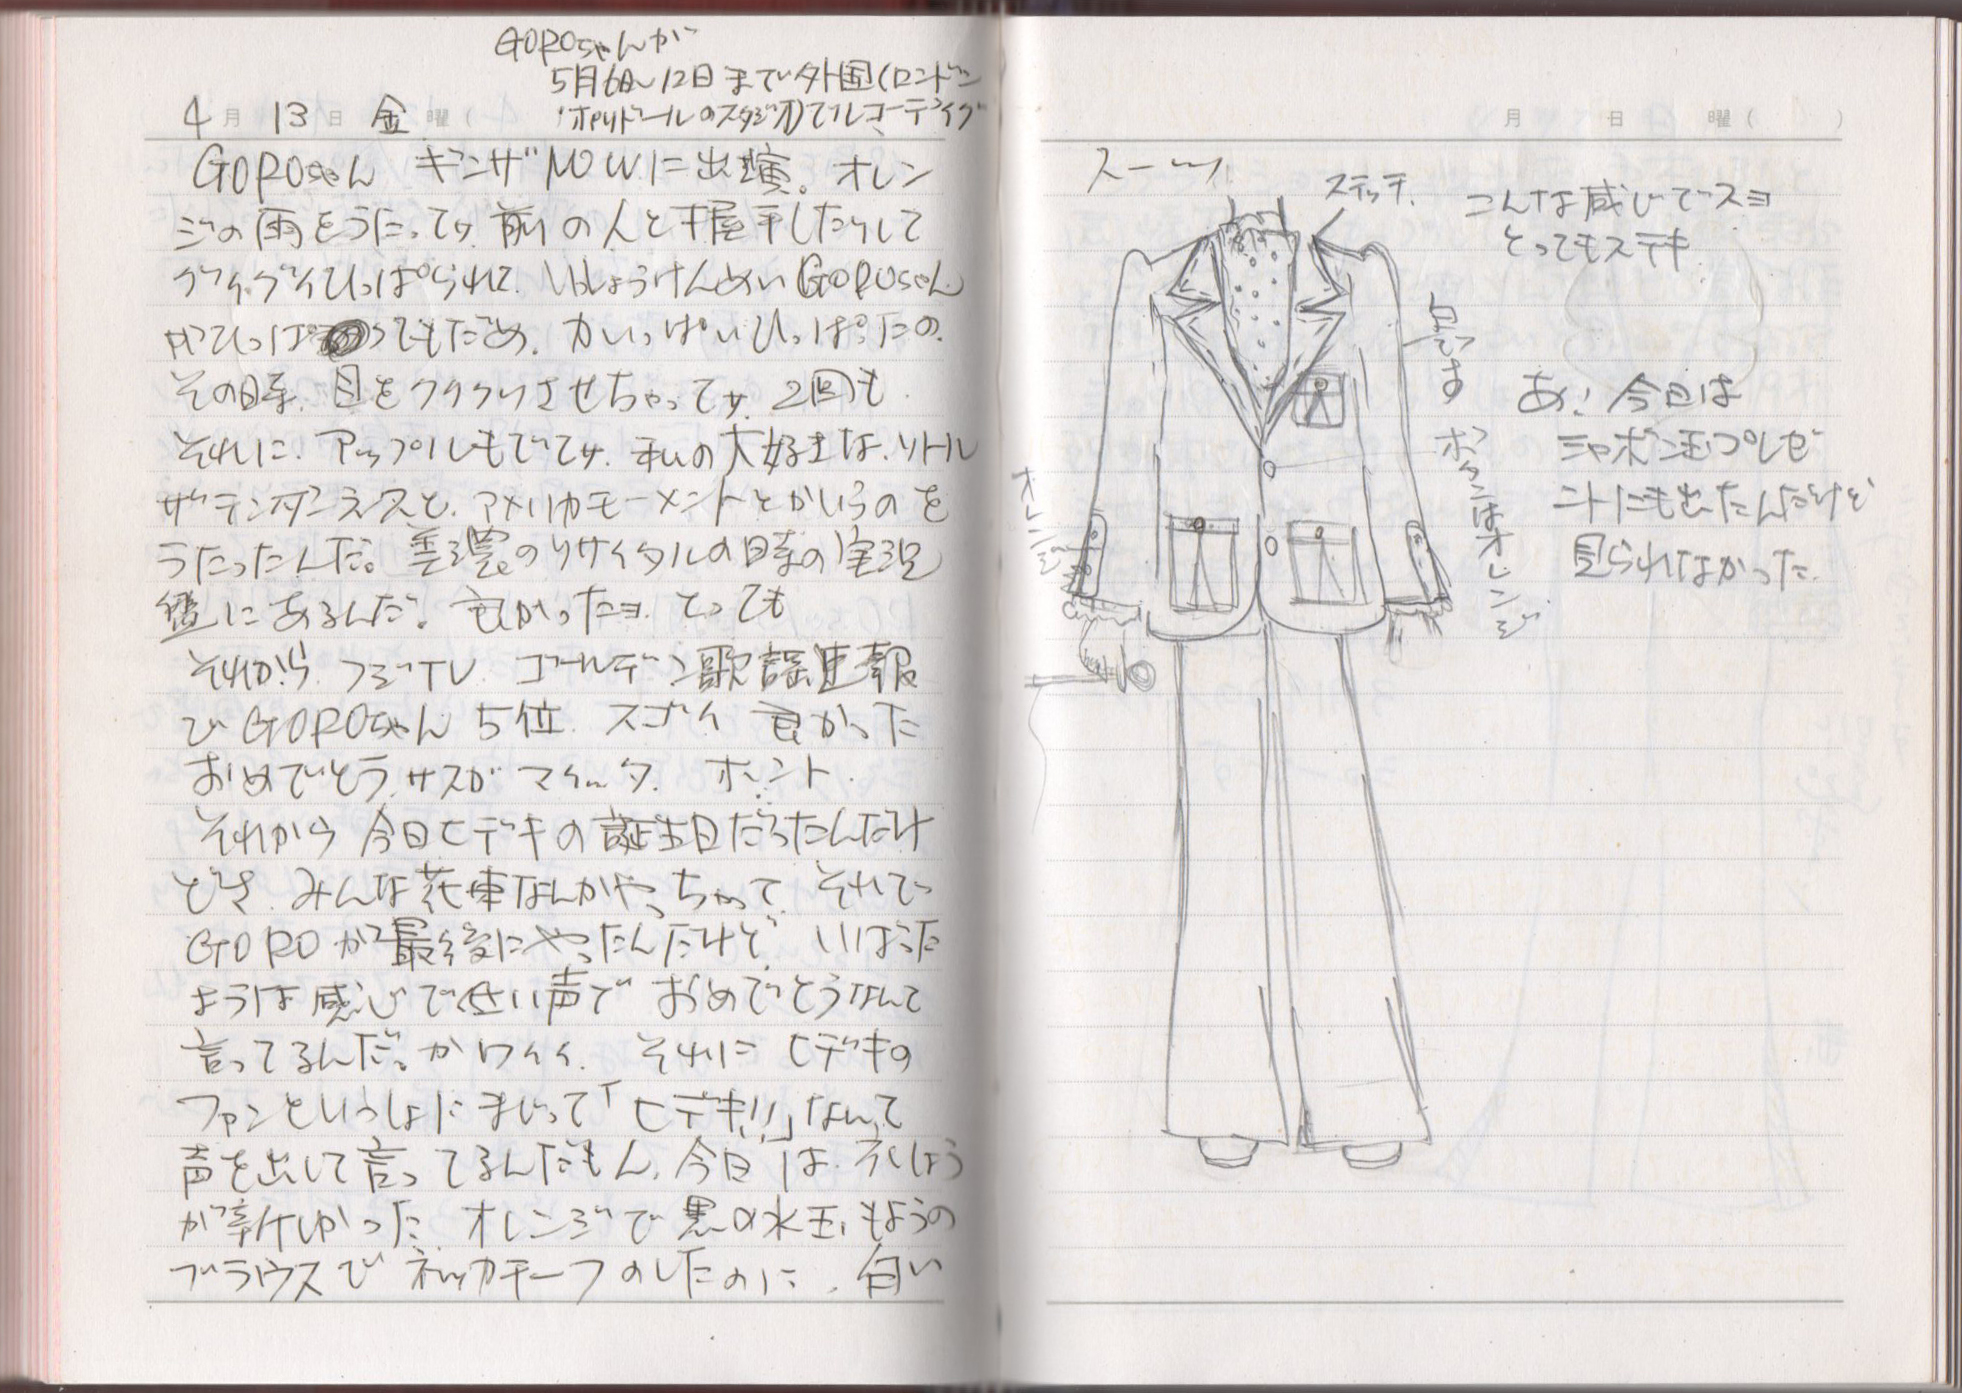 GOROちゃんが
5月6日〜12日まで外国(ロンドン
・ポリドールのスタジオ)でレコーディング
4月13日 金曜(
GOROちゃん ギンザNOWに出演。オレン
ジの雨をうたってサ。前の人と握手したりして
グイグイひっぱられて、いっしょうけんめいGOROちゃん
がひっぱってもだめ。力いっぱいひっぱったの。
その時、目をクリクリさせちゃってサ。2回も
それに、アップルもでてサ。私の大好きな、リトル
ザテンダネスと、アメリカモーメントとかいうのを
うたったんだ。美濃のリサイタルの時の実況
盤にあるんだ。良かったヨ とっても
それから フジTV ゴールデン歌謡速報
で GOROちゃん 5位 スゴイ 良かった
おめでとう。サスが マイッタ。ホント。
それから 今日ヒデキの誕生日だったんだけ
どさ、みんな花束なんかやっちゃって、それで
GOROが最後にやったんだけど、いばった
ような感じで低い声で おめでとうなんて
言ってるんだ。カワイイ。それに ヒデキの
ファンといっしょにまじって「ヒデキ!!」なんて
声を出して言ってるんだもん。今日は、衣しょう
が新しかった。オレンジで黒の水玉もようの
ブラウスで ネッカチーフのしたのに、白い
月 日 曜( )
スーツ
ステッチ
こんな感じでスヨ
とってもステキ
白です
あ! 今日は
シャボン玉プレゼ
ントにも出たんだけど
見られなかった。
ボタンはオレンジ
オレンジ